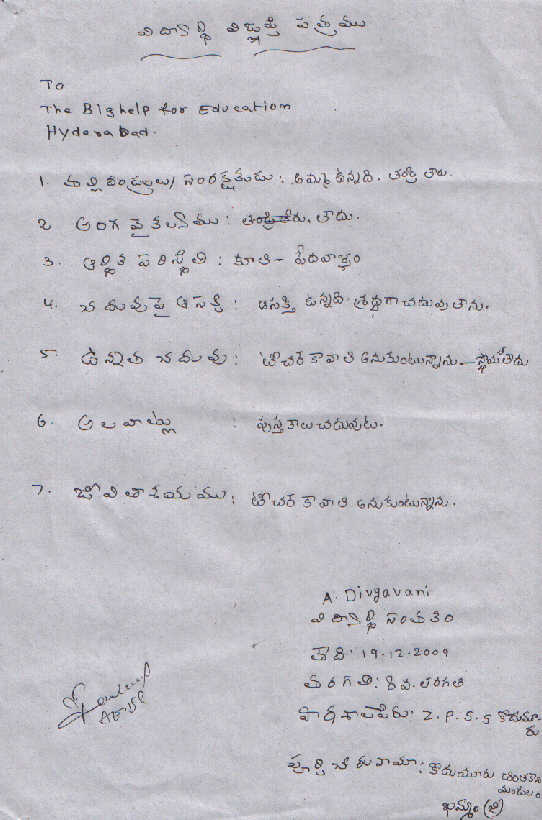 విద్యార్థి విజ్ఞప్తి పత్రము
To
The Bighelp for Education
Hyderabad.
1. తల్లిదండ్రులు/ సంరక్షకుడు: అమ్మ ఉన్నది, తండ్రి లేడు.
2 అంగ వైకల్యము: లేదు.
3. ఆర్థిక పరిస్థితి : కూలి - పేదవాళ్లం
4. చదువుపై ఆసక్తి: ఆసక్తి ఉన్నది. శ్రద్ధగా చదువుతాను.
5 ఉన్నత చదువు: టీచర్ కావాలి అనుకుంటున్నాను.
6. అలవాట్లు : పుస్తకాలు చదువుట.
7. జీవితాశయము: టీచర్ కావాలి అనుకుంటున్నాను.
A. Divyavani
విద్యార్థి సంతకం
తేది: 19.12.2009
తరగతి: 8 వ. తరగతి
పాఠశాల పేరు: Z.P.S.S కొదుమూ
రు
పూర్తి చిరునామా: కొదుమూరు చింతకాని
మండలం
ఖమ్మం (జి)